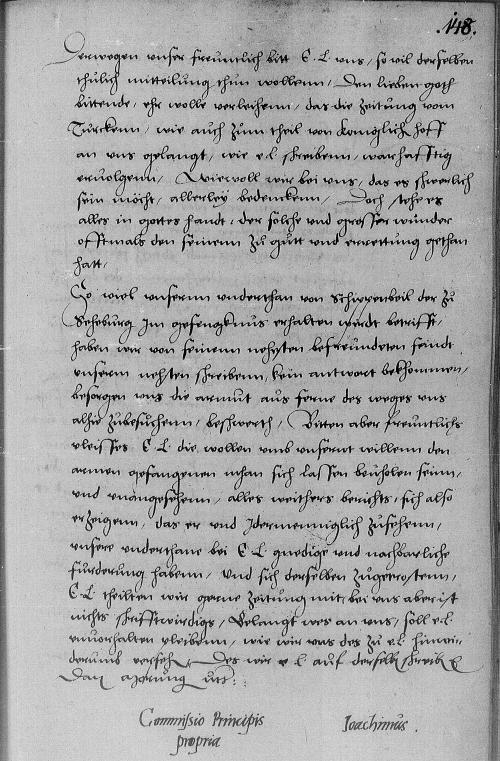 148.
Derwegen unser freuntlich bitt E. L. uns, so vil derselben
thulich mitteilung thun wollenn, Den lieben goth
bittende, ehr wolle verleihenn, das die zeitung vom
Turckenn, wie auch zum theil von koniglich hoff
an uns gelangt, wie e l schreibenn, warhafftig
ervolgenn, Wiewoll wir bei uns, das es schwerlich
sein möcht, allerley bedenckenn, Doch stehe es
alles in gottes handt, der solche und grosser wunder
offtmals den seinenn zu gutt und errettung gethan
hatt.
So viel unsernn underthan von Schippenbeil der zu
Seheburg Im gefengknus erhalten wurdt betrifft,
haben wir von seinenn nehsten befreundeten seindt
unserm nehsten schreibenn, kein antwort bekhommen,
besorgen uns die armut aus ferne des weges uns
alhie zubesuchenn, beschwerth, Bitten aber freuntlichs
vleisses E L die wollen umb unsernt willenn den
armen gefangenen mhan sich lassen bevholen seinn,
und unangesehenn, alles weithers berichts, sich also
erzeigenn, das er und Idermenniglich zusehenn,
unsere underthane bei E L gnedige und nachbarliche
furderung habenn, Und sich derselben zugetrostenn,
E L theilten wir gerne zeitung mit, bei uns aber ist
nichts schrifftwirdigs, Gelangt wes an uns, soll e l
unvorhalten pleibenn, wie wir uns des zu e l hinwi-
derumb versehen, Des wir e l auf derselb schreiben
Datum ut
Commissio Principis
propria
Joachimus.